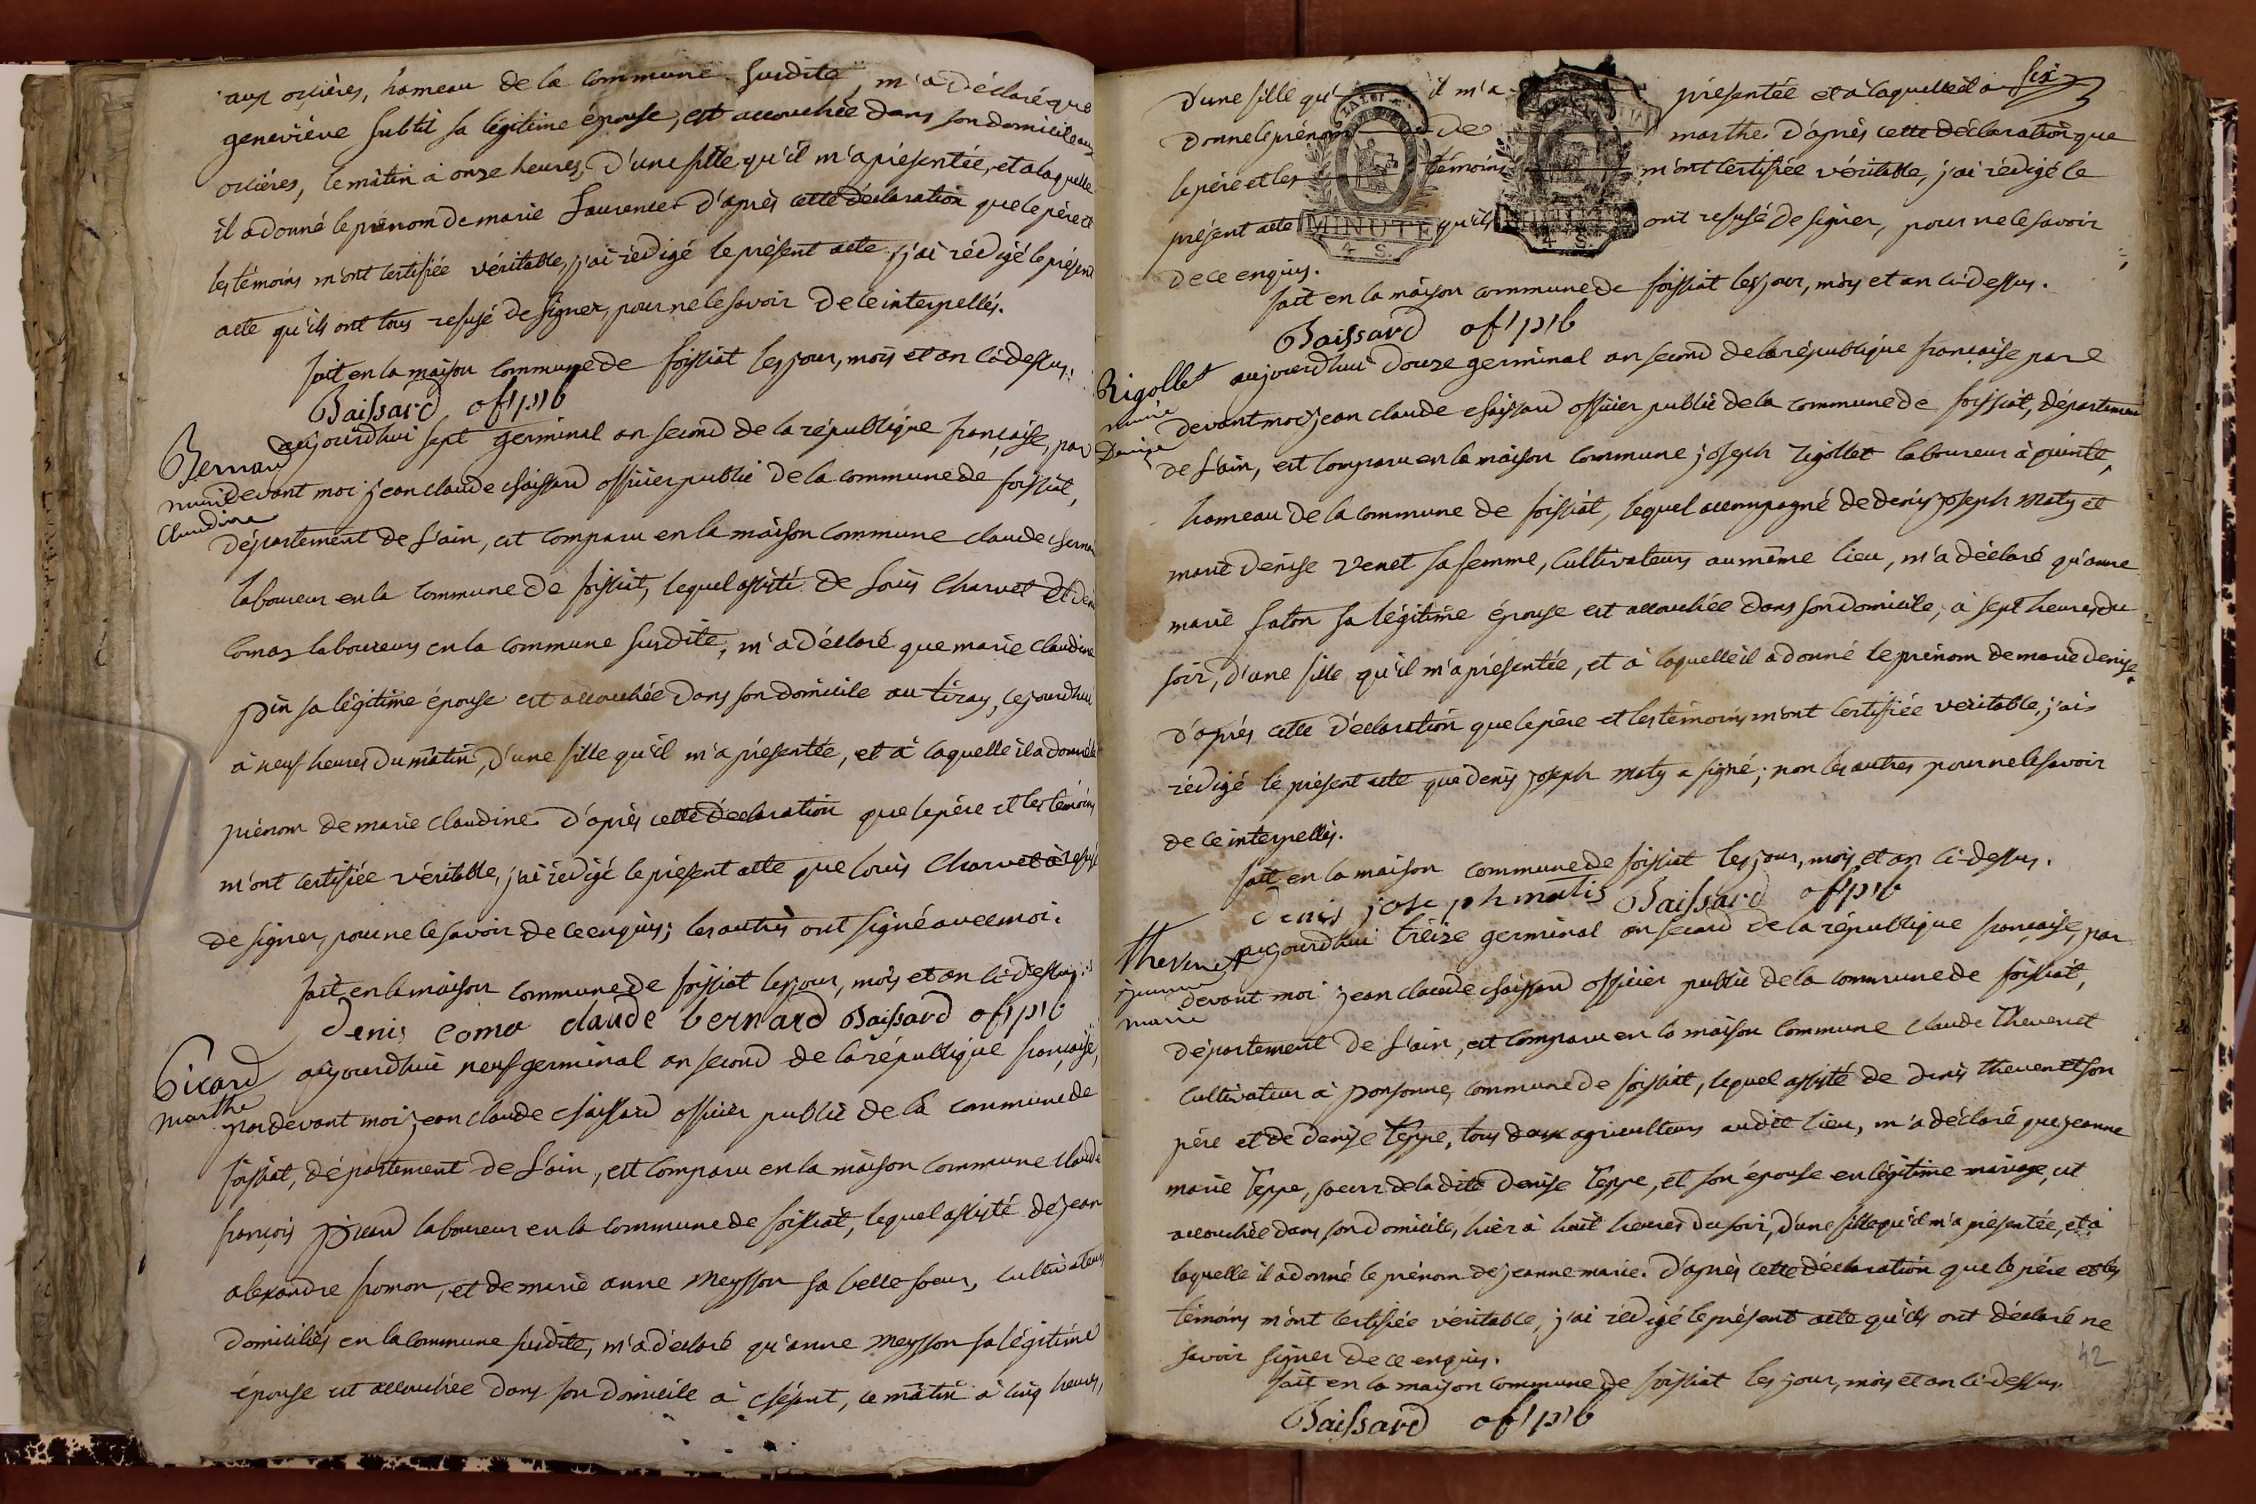 aux orcières, hameau de la commune susdite, m'a déclaré que
geneviève subtil sa légitime épouse, est accouchée dans son domicile aux
orcières, le mâtin à onze heures, d'une fille qu'il m'a présentée, et à laquelle
il a donné le prénom de marie Laurence. D'après cette déclaration que le père et
les témoins m'ont certifiée véritable, j'ai rédigé le présent acte, j'ai rédigé le présent
acte qu'ils ont tous refusé de signer, pour ne le savoir de ce interpellés.
fait en la maison commune de foissiat les jour, mois et an ci-dessus.
Baissard off. pub
Bernard
marie
Claudine
aujourd'hui sept germinal an second de la république française, par
devant moi jean claude Baissard officier public de la commune de foissiat,
département de L'ain, est comparu en la maison commune claude Bernard
laboureur en la commune de foissiat, lequel assisté de Louis Charvet et denis
comas laboureurs en la commune susdite, m'a déclaré que marie claudine
pin sa légitime épouse est accouchée dans son domicile au tiray, ce jourd'hui
à neuf heures du mâtin, d'une fille qu'il m'a présentée, et à laquelle il a donné le
prénom de marie claudine. D'après cette déclaration que le père et les témoins
m'ont certifiée véritable, j'ai rédigé le présent acte que louis Charvet a refusé
de signer, pour ne le savoir de ce enquis; les autres ont signé avec moi.
fait en la maison commune de foissiat les jour, mois et an ci-dessus.
Denis coma claude bernard Baissard off. pub
Picard
marthe
aujourd'hui neuf germinal an second de la république française,
pardevant moi jean claude Baissard officier public de la commune de
foissiat, département de L'ain, est comparu en la maison commune claude
françois Picard laboureur en la commune de foissiat, lequel assisté de jean
alexandre fromon, et de marie anne Meysson sa belle soeur, cultivateurs
domiciliés en la commune susdite, m'a déclaré qu'anne Meysson sa légitime
épouse est accouchée dans son domicile à , ce mâtin à cinq heures,
six
d'une fille qu' il m'a présentée et à laquelle il a
donné le prénom de marthe. D'après cette déclaration que
le père et les témoins m'ont certifiée véritable, j'ai rédigé le
présent acte qu'ils ont refusé de signer, pour ne le savoir
de ce enquis.
LA LOI
MINUTE
4 S.
MINUTE
4 S.
fait en la maison commune de foissiat les jour, mois et an ci-dessus.
Baissard off. pub
Rigollet
marie
Denise
aujourd'hui douze germinal an second de la république française par
devant moi jean claude Baissard officier public de la commune de foissiat, département
de L'ain, est comparu en la maison commune joseph rigollet laboureur à ,
hameau de la commune de foissiat, lequel accompagné de denis joseph Maty et
marie denise Venet sa femme, cultivateurs au même lieu, m'a déclaré qu'anne
marie faton sa légitime épouse est accouchée dans son domicile, à sept heures du
soir, d'une fille qu'il m'a présentée, et à laquelle il a donné le prénom de marie denise.
D'après cette déclaration que le père et les témoins m'ont certifiée véritable, j'ai
rédigé le présent acte que denis joseph Maty a signé; non les autres pour ne le savoir
de ce interpellés.
fait en la maison commune de foissiat les jour, mois et an ci-dessus.
denis joseph matis Baissard off pub
Thevenet
jeanne
marie
aujourd'hui treize germinal an second de la république française, par
devant moi jean claude Baissard officier public de la commune de foissiat,
département de L'ain, est comparu en la maison commune claude Thevenet
cultivateur à ponsonne, commune de foissiat, lequel assisté de denis thevenet son
père et de denise Teppe, tous deux agriculteurs audit lieu, m'a déclaré que jeanne
marie Teppe, soeur de ladite denise Teppe, et son épouse en légitime mariage, est
accouchée dans son domicile, hier à huit heures du soir, d'une fille qu'il m'a présentée, et à
laquelle il a donné le prénom de jeanne marie. D'après cette déclaration que le père et les
témoins m'ont certifiée véritable, j'ai rédigé le présent acte qu'ils ont déclaré ne
savoir signer de ce enquis.
fait en la maison commune de foissiat les jour, mois et an ci-dessus.
Baissard off. pub
42